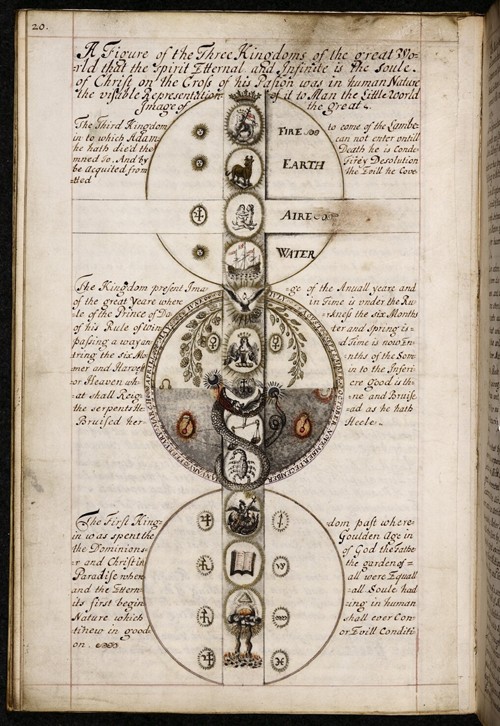 20.
A Figure of the Three Kingdoms of the great Wo=
rld that the Spirit Etternal and Infinite is the soule
of Christ on the Cross of his Passion was in human Nature
the visible Representation of it to Man the Little World
Image of the great
The Third Kingdom to come of the Lambe
in to which Adam can not enter untill
he hath die'd the Death he is Conde
mned to. And by Desolution
be acquited from the Evill he Co
tted
FIRE
EARTH
AIRE
WATER
The Kingdom present Ima ge of the Anuall yeare and
of the great Yeare where in Time is under the Ru
le of the Prince of Da rkness the six Months
of his Rule of Win ter and Spring is
passing away an d Time is now En
tring the six Mo nths of the Som
mer and Harvest in to the Inferi
or Heaven wh ere Good is the
at shall Reig ne and Bruise
the serpents He ad as he hath
Bruised her Heele
The First King dom past where
in was spent the Goulden Age in
the Dominions of God the Fathe
r and Christ in the garden of
Paradise when all were Equall
and the Etern all Soule had
its first begin ing in human
Nature which shall ever Con
tinew in good or Evill Conditi
on.